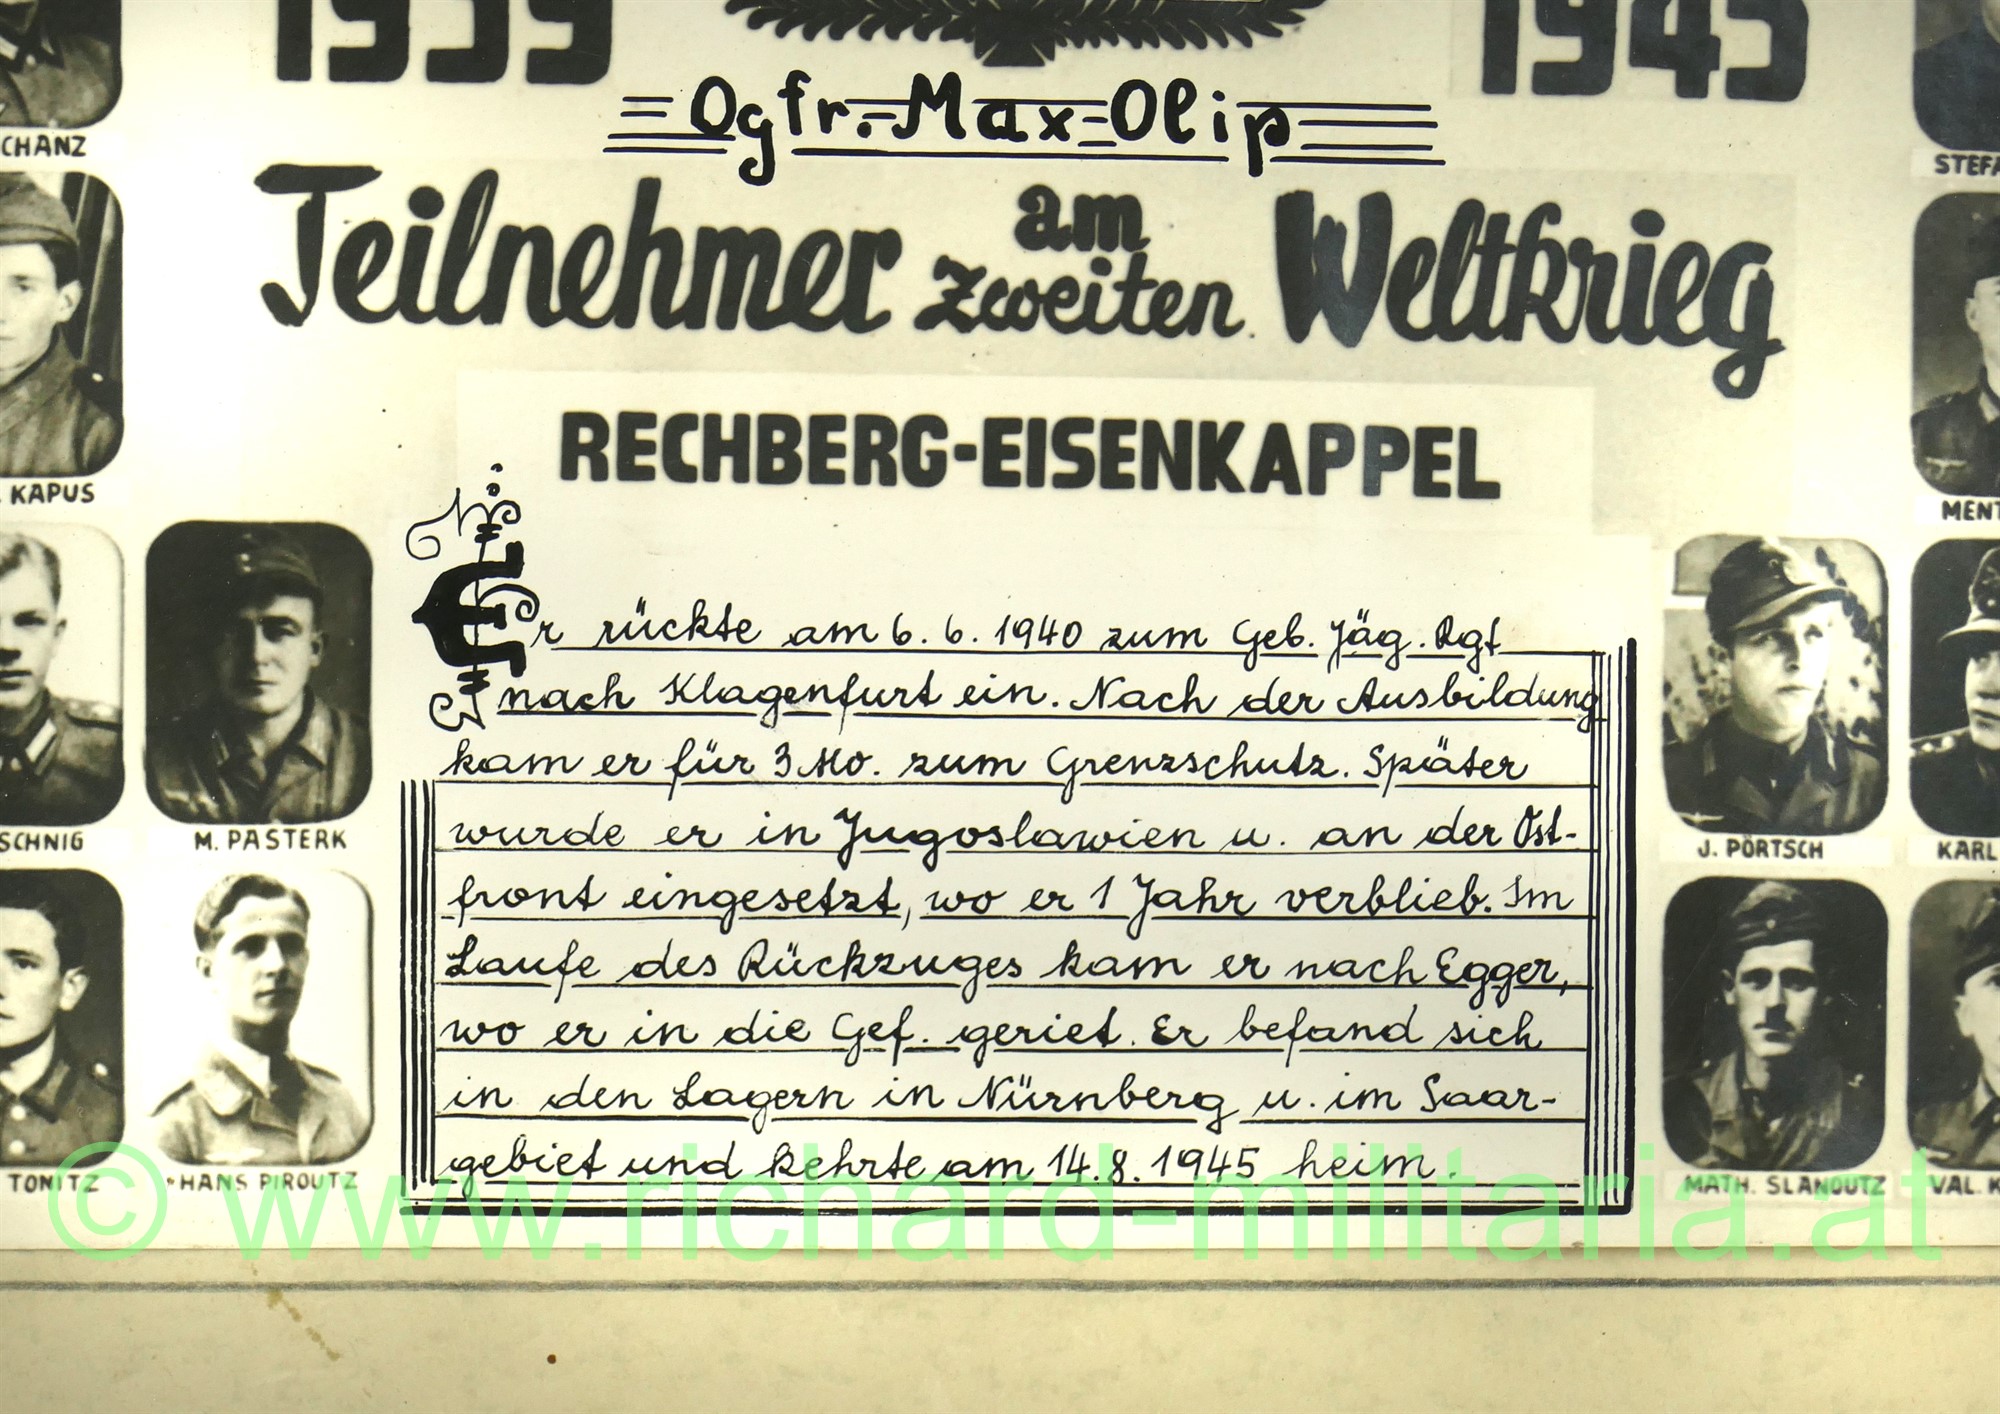 1939 1945
Ogfr. Max Olip
Teilnehmer am zweiten Weltkrieg
RECHBERG-EISENKAPPEL
Er rückte am 6. 6. 1940 zum Geb. Jäg. Rgt
nach Klagenfurt ein. Nach der Ausbildung
kam er für 3 Mo. zum Grenzschutz. Später
wurde er in Jugoslawien u. an der Ost-
front eingesetzt, wo er 1 Jahr verblieb. Im
Laufe des Rückzuges kam er nach Egger,
wo er in die Gef. geriet. Er befand sich
in den Lagern in Nürnberg u. im Saar-
gebiet und kehrte am 14.8.1945 heim.
CHANZ
KAPUS
SCHNIG
M. PASTERK
TONITZ
HANS PIROUTZ
STEFA
MENT
J. PÖRTSCH
KARL
MATH. SLANOUTZ
VAL. K
© www.richard-militaria.at